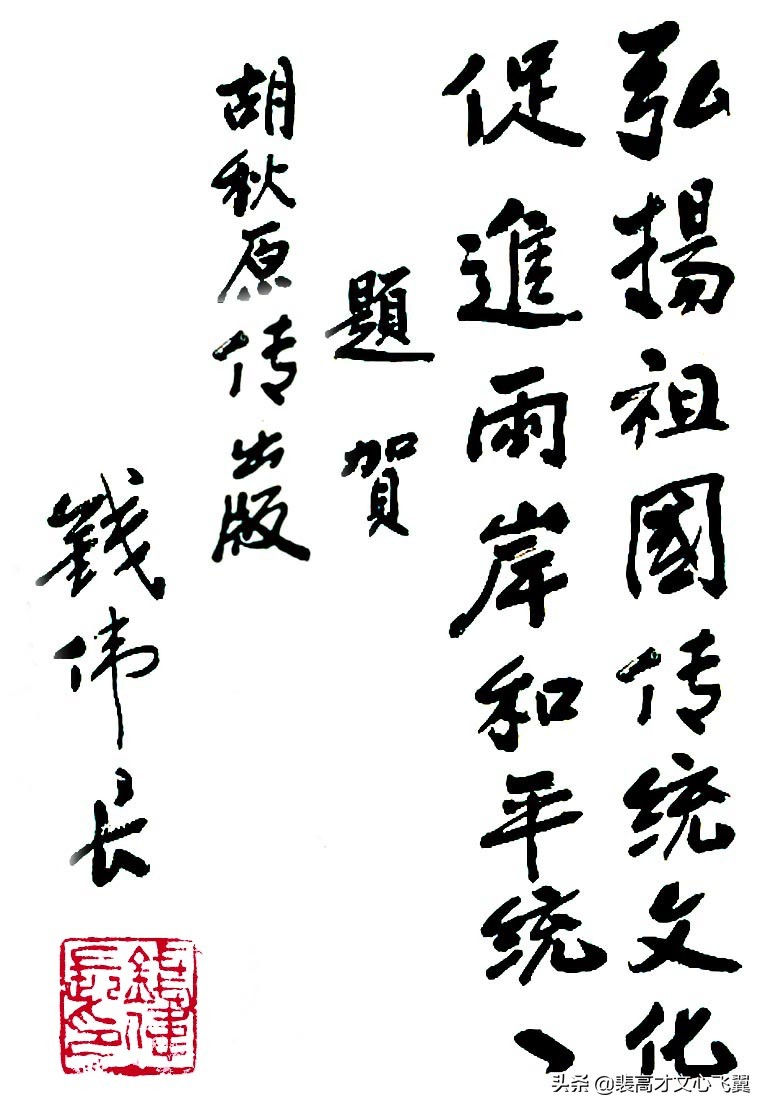 弘揚祖國传统文化
促進兩岸和平统一
題賀
胡秋原传出版
錢伟长
錢偉長印
头条 @裴高才文心飞翼